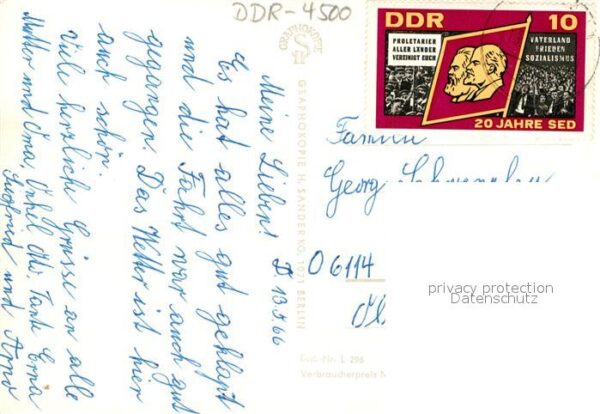 DDR-4500
DDR 10
PROLETARIER
ALLER LÄNDER
VEREINIGT EUCH
VATERLAND
FRIEDEN
SOZIALISMUS
20 JAHRE SED
GRAPHOKOPIE
GRAPHOKOPIE H. SANDER KG, 1071 BERLIN
L 296
Verbraucherpreis
D 13.5.66
Meine Lieben!
Es hat alles gut geklapt
und die Fahrt war auch gut
gegangen. Das Wetter ist hier
auch schön.
Viele herzlich Grüsse an alle
Mutter und Oma, Onkel Otto, Tante Erna
Siegfried und Arno
Familie
Georg
O 6114
privacy protection
Datenschutz